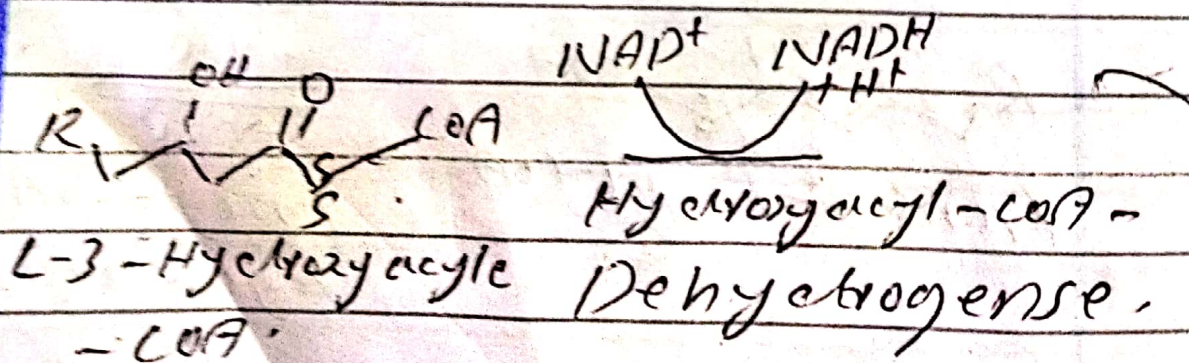 NAD+ NADH
+H+
OH O
R CoA
S
S
Hydroxyacyl-CoA-
L-3-Hydroxyacyle Dehydrogense.
-CoA.